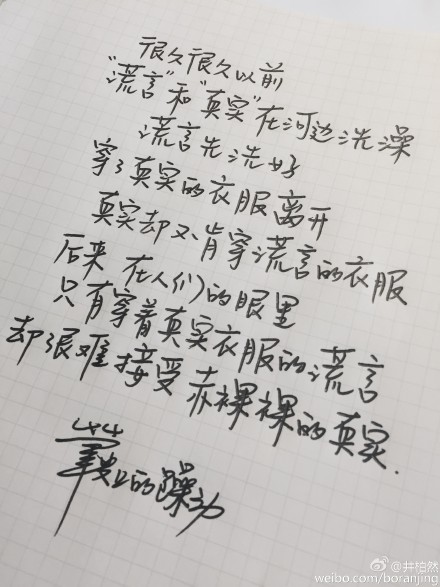 很久很久以前
“谎言”和“真实”在河边洗澡
谎言先洗好
穿了真实的衣服离开
真实却不肯穿谎言的衣服
后来 在人们的眼里
只有穿着真实衣服的谎言
却很难接受赤裸裸的真实.
44
的躁动
@井柏然
weibo.com/boranjing